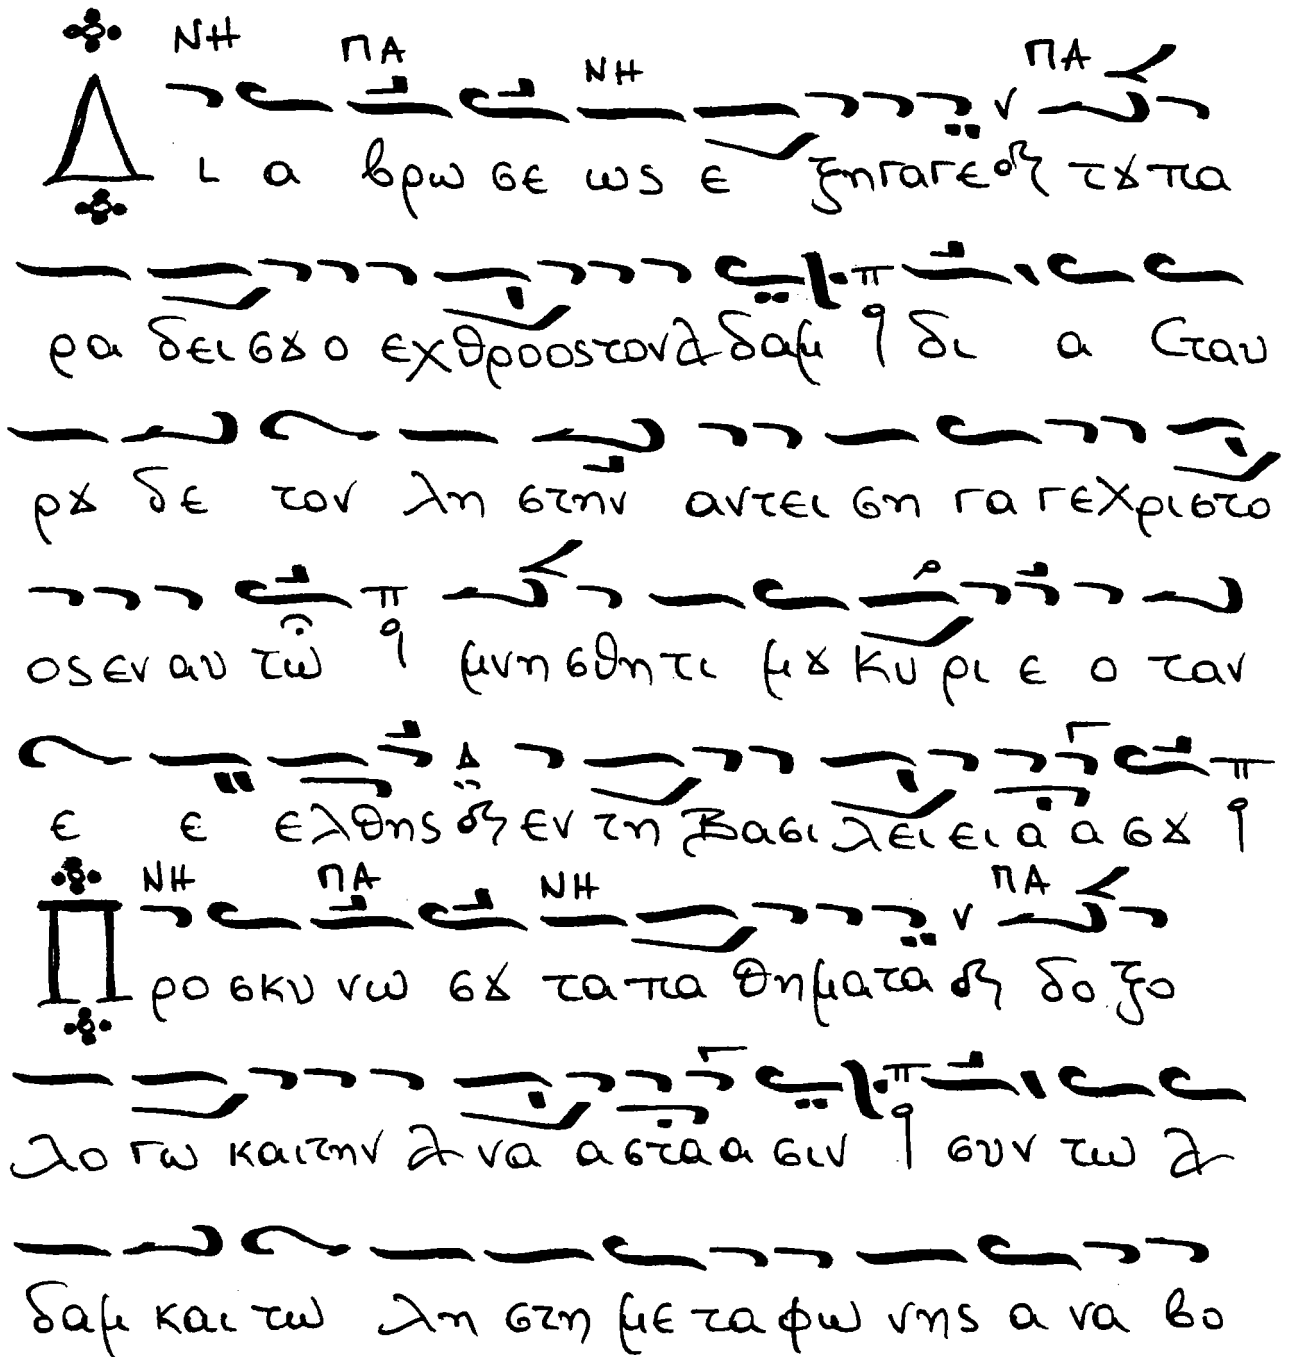 ΝΗ ΠΑ ΝΗ ΠΑ
Δ ι α βρω σε ως ε ξηγαγε τȣ πα
ρα δει σȣ ο εχθροος τον Α δαμ δι α Σταυ
ρȣ δε τον λη στην αντ ει ση γα γε Χριστο
ος εν αυ τω μνη σθη τι μȣ κυ ρι ε ο ταν
ε ε ελθης εν τη Βασι λει ει α α σȣ
ΝΗ ΠΑ ΝΗ ΠΑ
Π ρο σκυ νω σȣ τα πα θηματα δο ξο
λο γω και την Α να α στα α σιν συν τω Α
δαμ και τω λη στη με τα φω νης α να βο